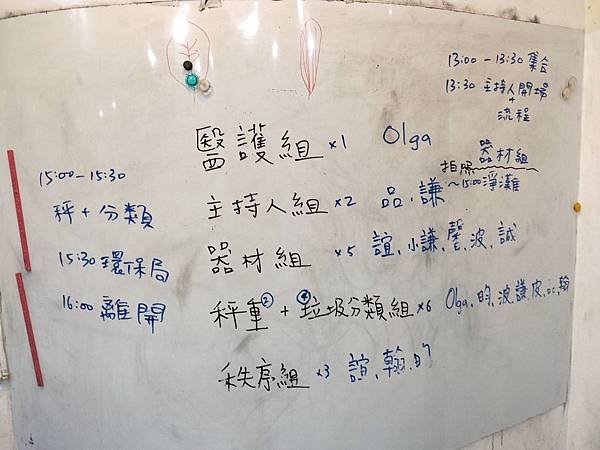 13:00 - 13:30 集合
13:30 主持人開場
+
流程
器材組
拍照
~15:00淨灘
醫護組 ×1 Olga
主持人組 ×2 品、謙
器材組 ×5 誼、小謙、馨、波、誠
秤重② + ④垃圾分類組 ×6 Olga、的、波、謙、皮、品、翰
秩序組 ×3 誼、翰、的
15:00 - 15:30
秤 + 分類
15:30 環保局
16:00 離開